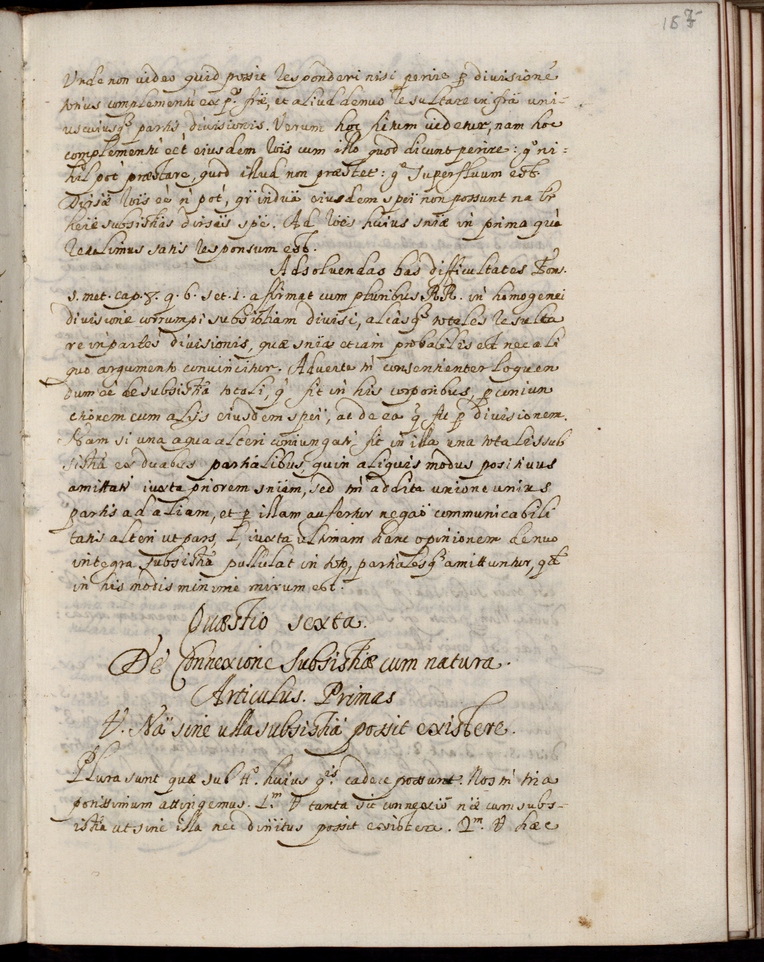 187
Unde non video quid possit responderi nisi perire p divisionē
unius complementi ex p.ᵃ ſrā, et aliud denuo resultare in ſrā uni-
uscuiusq₃ partis divisionis. Verum hoc fictum videtur, nam hoc
complementū eēt eiusdem rōis cum illo quod dicunt perire: gᵒ ni-
hil pot' præstare, quod illud non præstet: gᵒ superfluum est.
Diversæ rōis eē ñ pot', qr individua eiusdem speī non possunt
subsistīas diversas spē. Ad rōes huius sniæ in prima quā
retulimus satis responsum est.
Ad solvendas has difficultates Fons.
5. met. cap. 8. q. 6. set. 1. affirmat cum pluribus RR. in homogenei
divisione corrumpi subsistīam divisi, aliasq₃ totales resulta
re in partes divisionis, quæ snīa etiam probabilis est nec ali
quo argumento convincitur. Adverte tn̄ consentienter loquen
dum eē de subsistīa totali, q̄ fit in his corporibus, p coniun
ctionem cum alijs eiusdem speī, ac de ea q̄ fit p divisionem.
Nam si una aqua alteri coniungatr, fit in illa una totalis sub
sistīa ex duabus partialibus, quin aliquis modus positivus
amittatr iuxta priorem snīam, sed tn̄ addita unione unius
partis ad aliam, et p illam aufertur negaō communicabili
tatis alteri ut pars, l, iuxta ultimam hanc opinionem denuo
integra subsistīa pullulat in toto, partialesq₃ amittuntur, qd
in his modis minime mirum est.
Quæstio sexta.
De Connexione subsistīæ cum natura.
Articulus. Primus
V. Nā sine ulla subsistīa possit existere.
Plura sunt quæ sub tt.ᵒ huius q̄is cadere possunt: Nos tn̄ tria
potissimum attingemus. 1.ᵐ V tanta sit connexio nāē cum subs-
istīa ut sine illa nec divinitus possit existere. 2.ᵐ V hæc